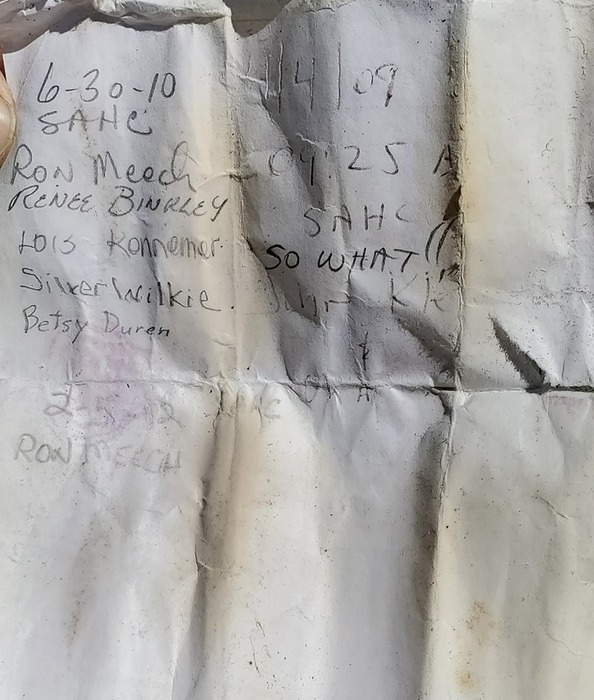 6-30-10
SAHC
RON Meech
RENEE BINKLEY
LOIS Konnemer
Silver Wilkie
Betsy Duren
2-5-12
RON MEECH
4/09
09:25 A
SAHC
SO WHAT